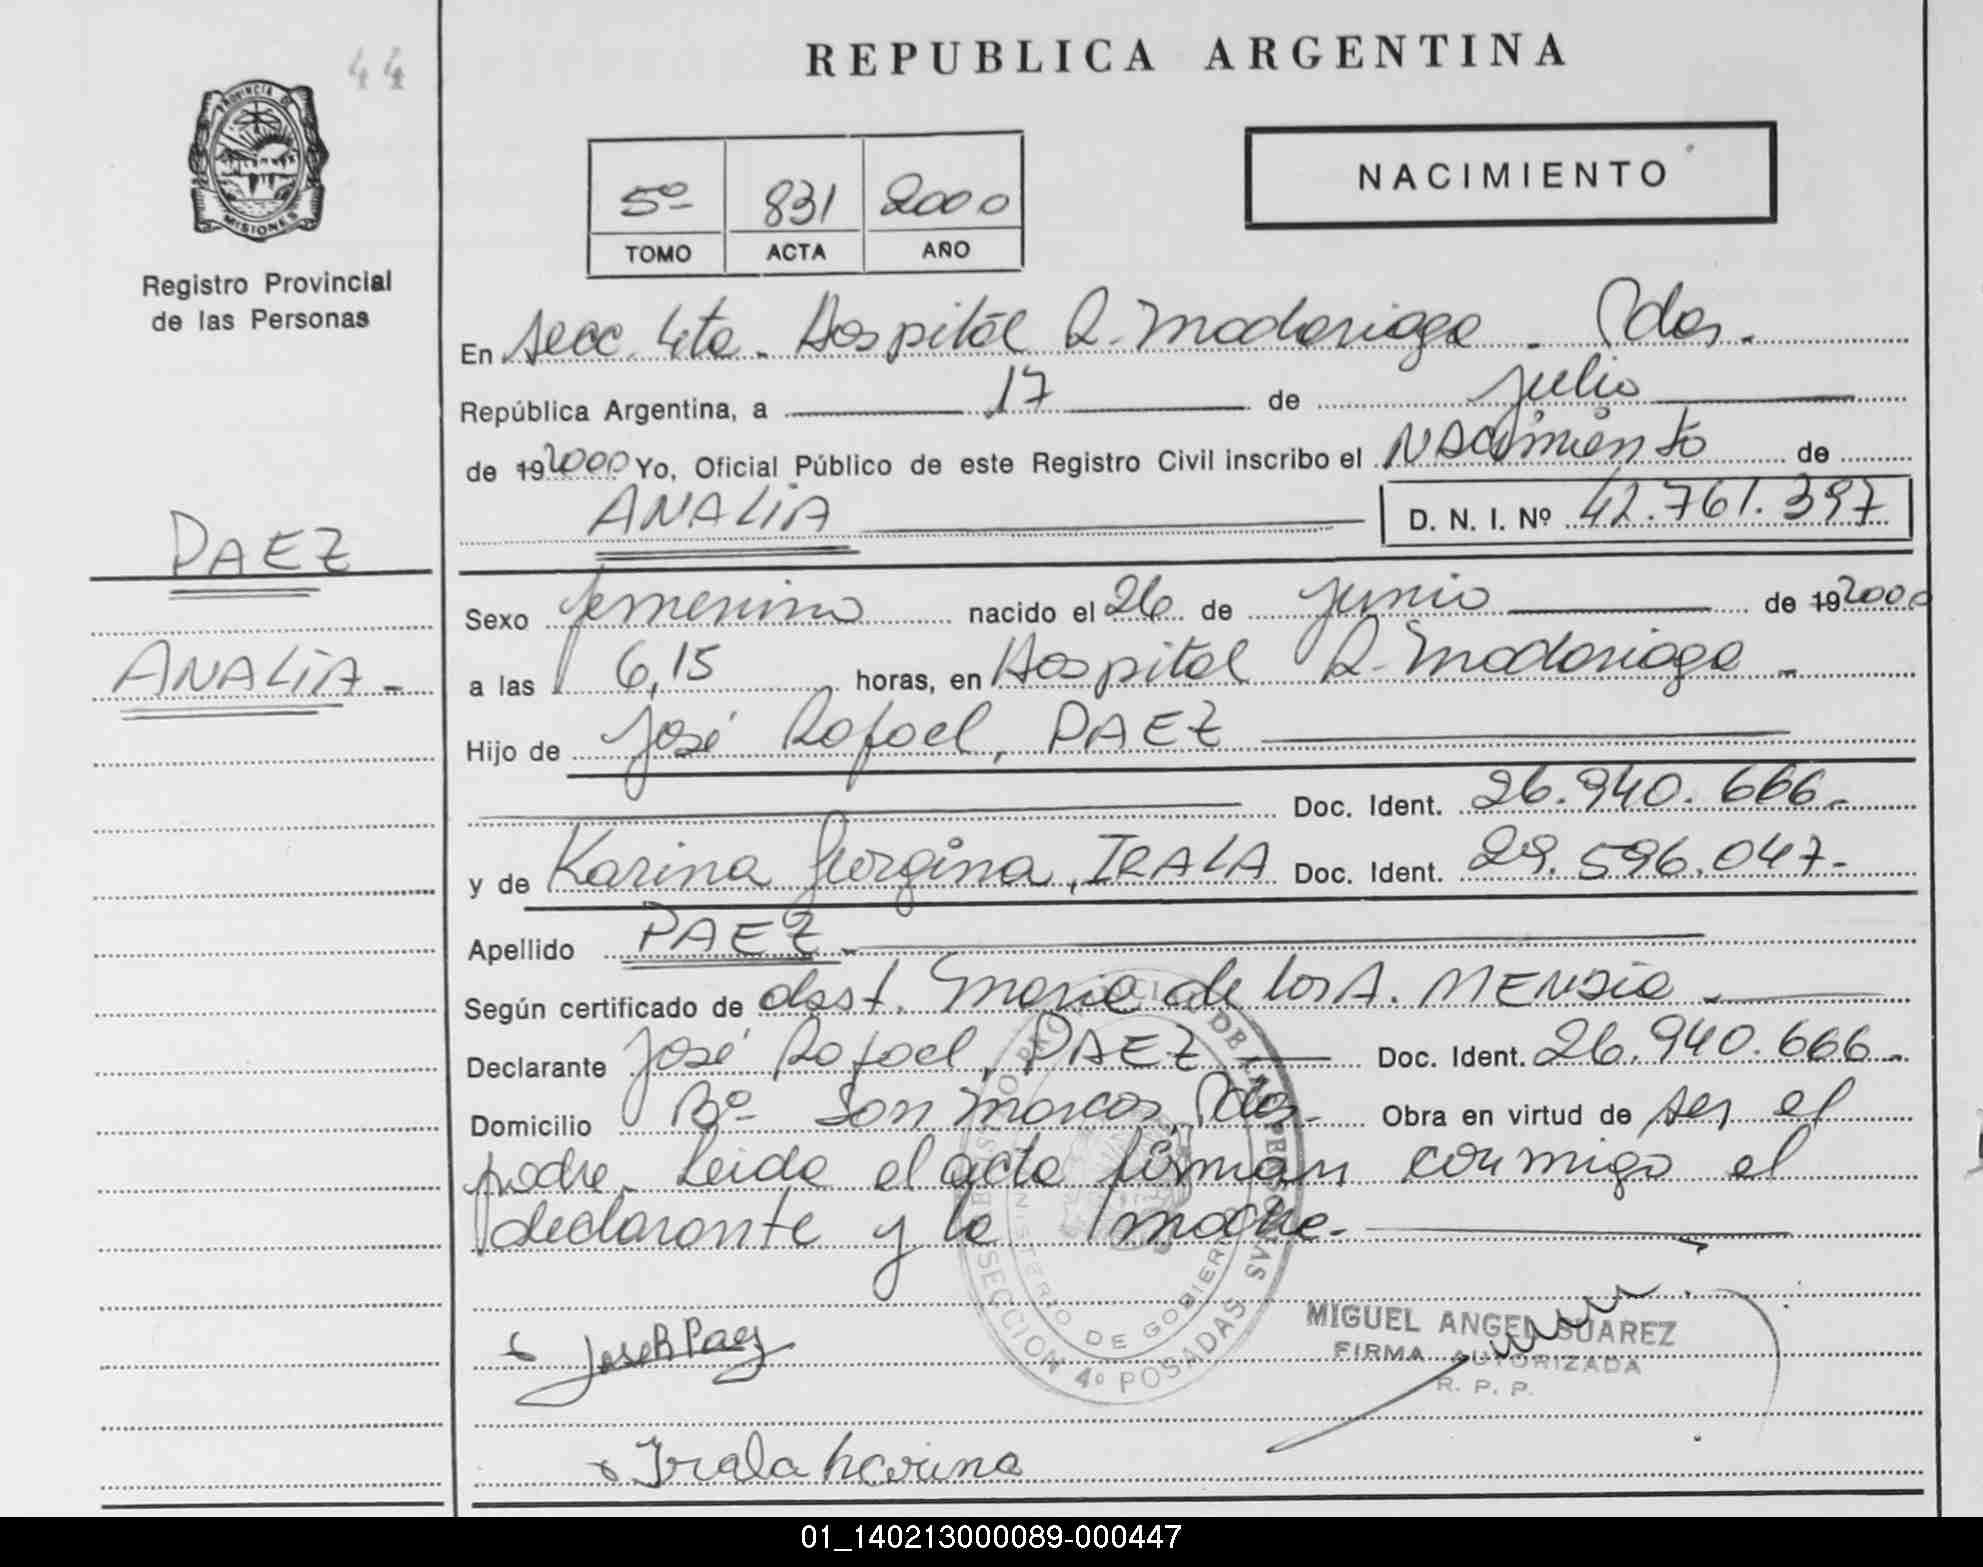 44
REPUBLICA ARGENTINA
PROVINCIA DE
MISIONES
Registro Provincial
de las Personas
5º 831 2000
TOMO ACTA AÑO
NACIMIENTO
En Secc. 4ta. Hospital R. Madariaga. Pdas.
República Argentina, a 17 de julio
de 19 2000 Yo, Oficial Público de este Registro Civil inscribo el Nacimiento de
ANALIA D. N. I. Nº 42.761.397
PAEZ
ANALIA.-
Sexo femenino nacido el 26 de junio de 19 2000
a las 6,15 horas, en Hospital R. Madariaga -
Hijo de José Rafael, PAEZ
Doc. Ident. 26.940.666.-
y de Karina Georgina, IRALA Doc. Ident. 29.596.047.-
Apellido PAEZ.
Según certificado de obst. Maria de los A. MENDia.
Declarante José Rafael, PAEZ Doc. Ident. 26.940.666.-
Domicilio Bº San Marcos, Pdas.- Obra en virtud de ser el
padre. Leida el acta firman conmigo el
declarante y la madre.-
REGISTRO PROVINCIAL DE LAS PERSONAS
MINISTERIO DE GOBIERNO
SECCION 4º POSADAS
MIGUEL ANGEL SUAREZ
FIRMA AUTORIZADA
R. P. P.
x Jose R Paez
x Irala Karina
01_140213000089-000447